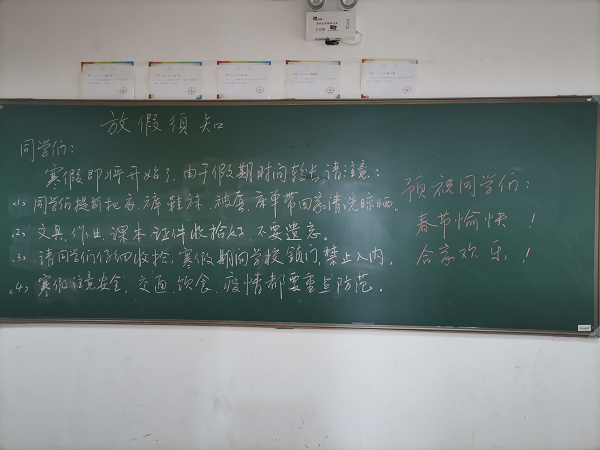 放假须知
同学们：
寒假即将开始了，由于假期时间较长，请注意：
(1) 同学们提前把衣、裤、鞋、袜、被套、床单带回家清洗晾晒。
(2) 文具、作业、课本、证件收拾好，不要遗忘。
(3) 请同学们仔细收拾，寒假期间学校锁门，禁止入内。
(4) 寒假注意安全，交通、饮食、疫情都要重点防范。
预祝同学们：
春节愉快！
合家欢乐！